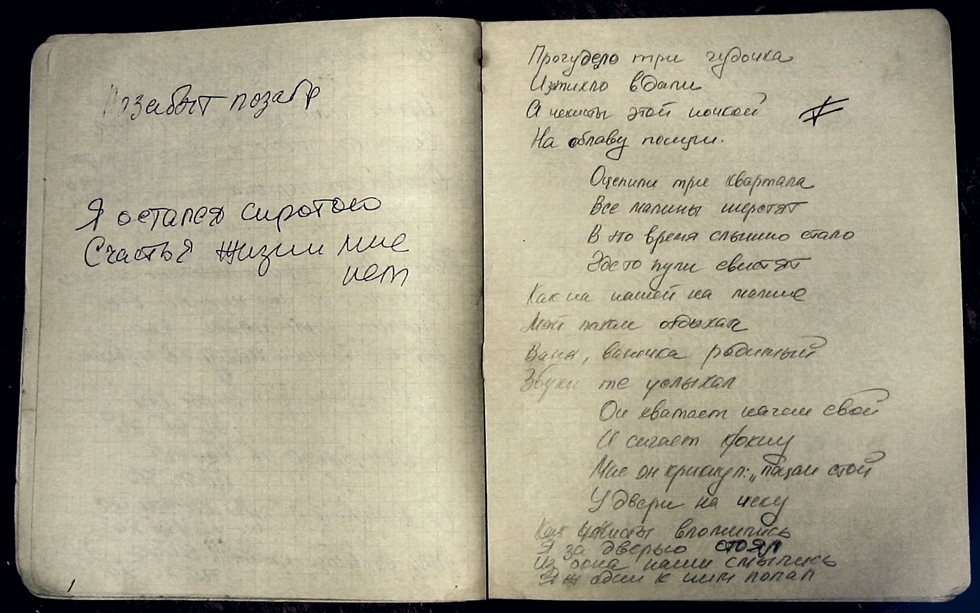 забыт позабр
Я остался сиротою
Счастья жизни мне
нет
Прогудело три гудочка
И затихло вдали
А чекисты этой ночкой
На облаву пошли.
Оцепили три квартала
Все малины шерстят
В это время слышно стало
Где то пули свистят
Как на нашей на малине
Мой пахан отдыхал
Ваня, ваничка родимый
Звуки те услыхал
Он хватает наган свой
И сигает к окну
Мне он крикнул: „пацан стой
У двери на чеку
Как чекисты вломились
Я за дверью стоял
Из окна наши смылись
Я один к ним попал